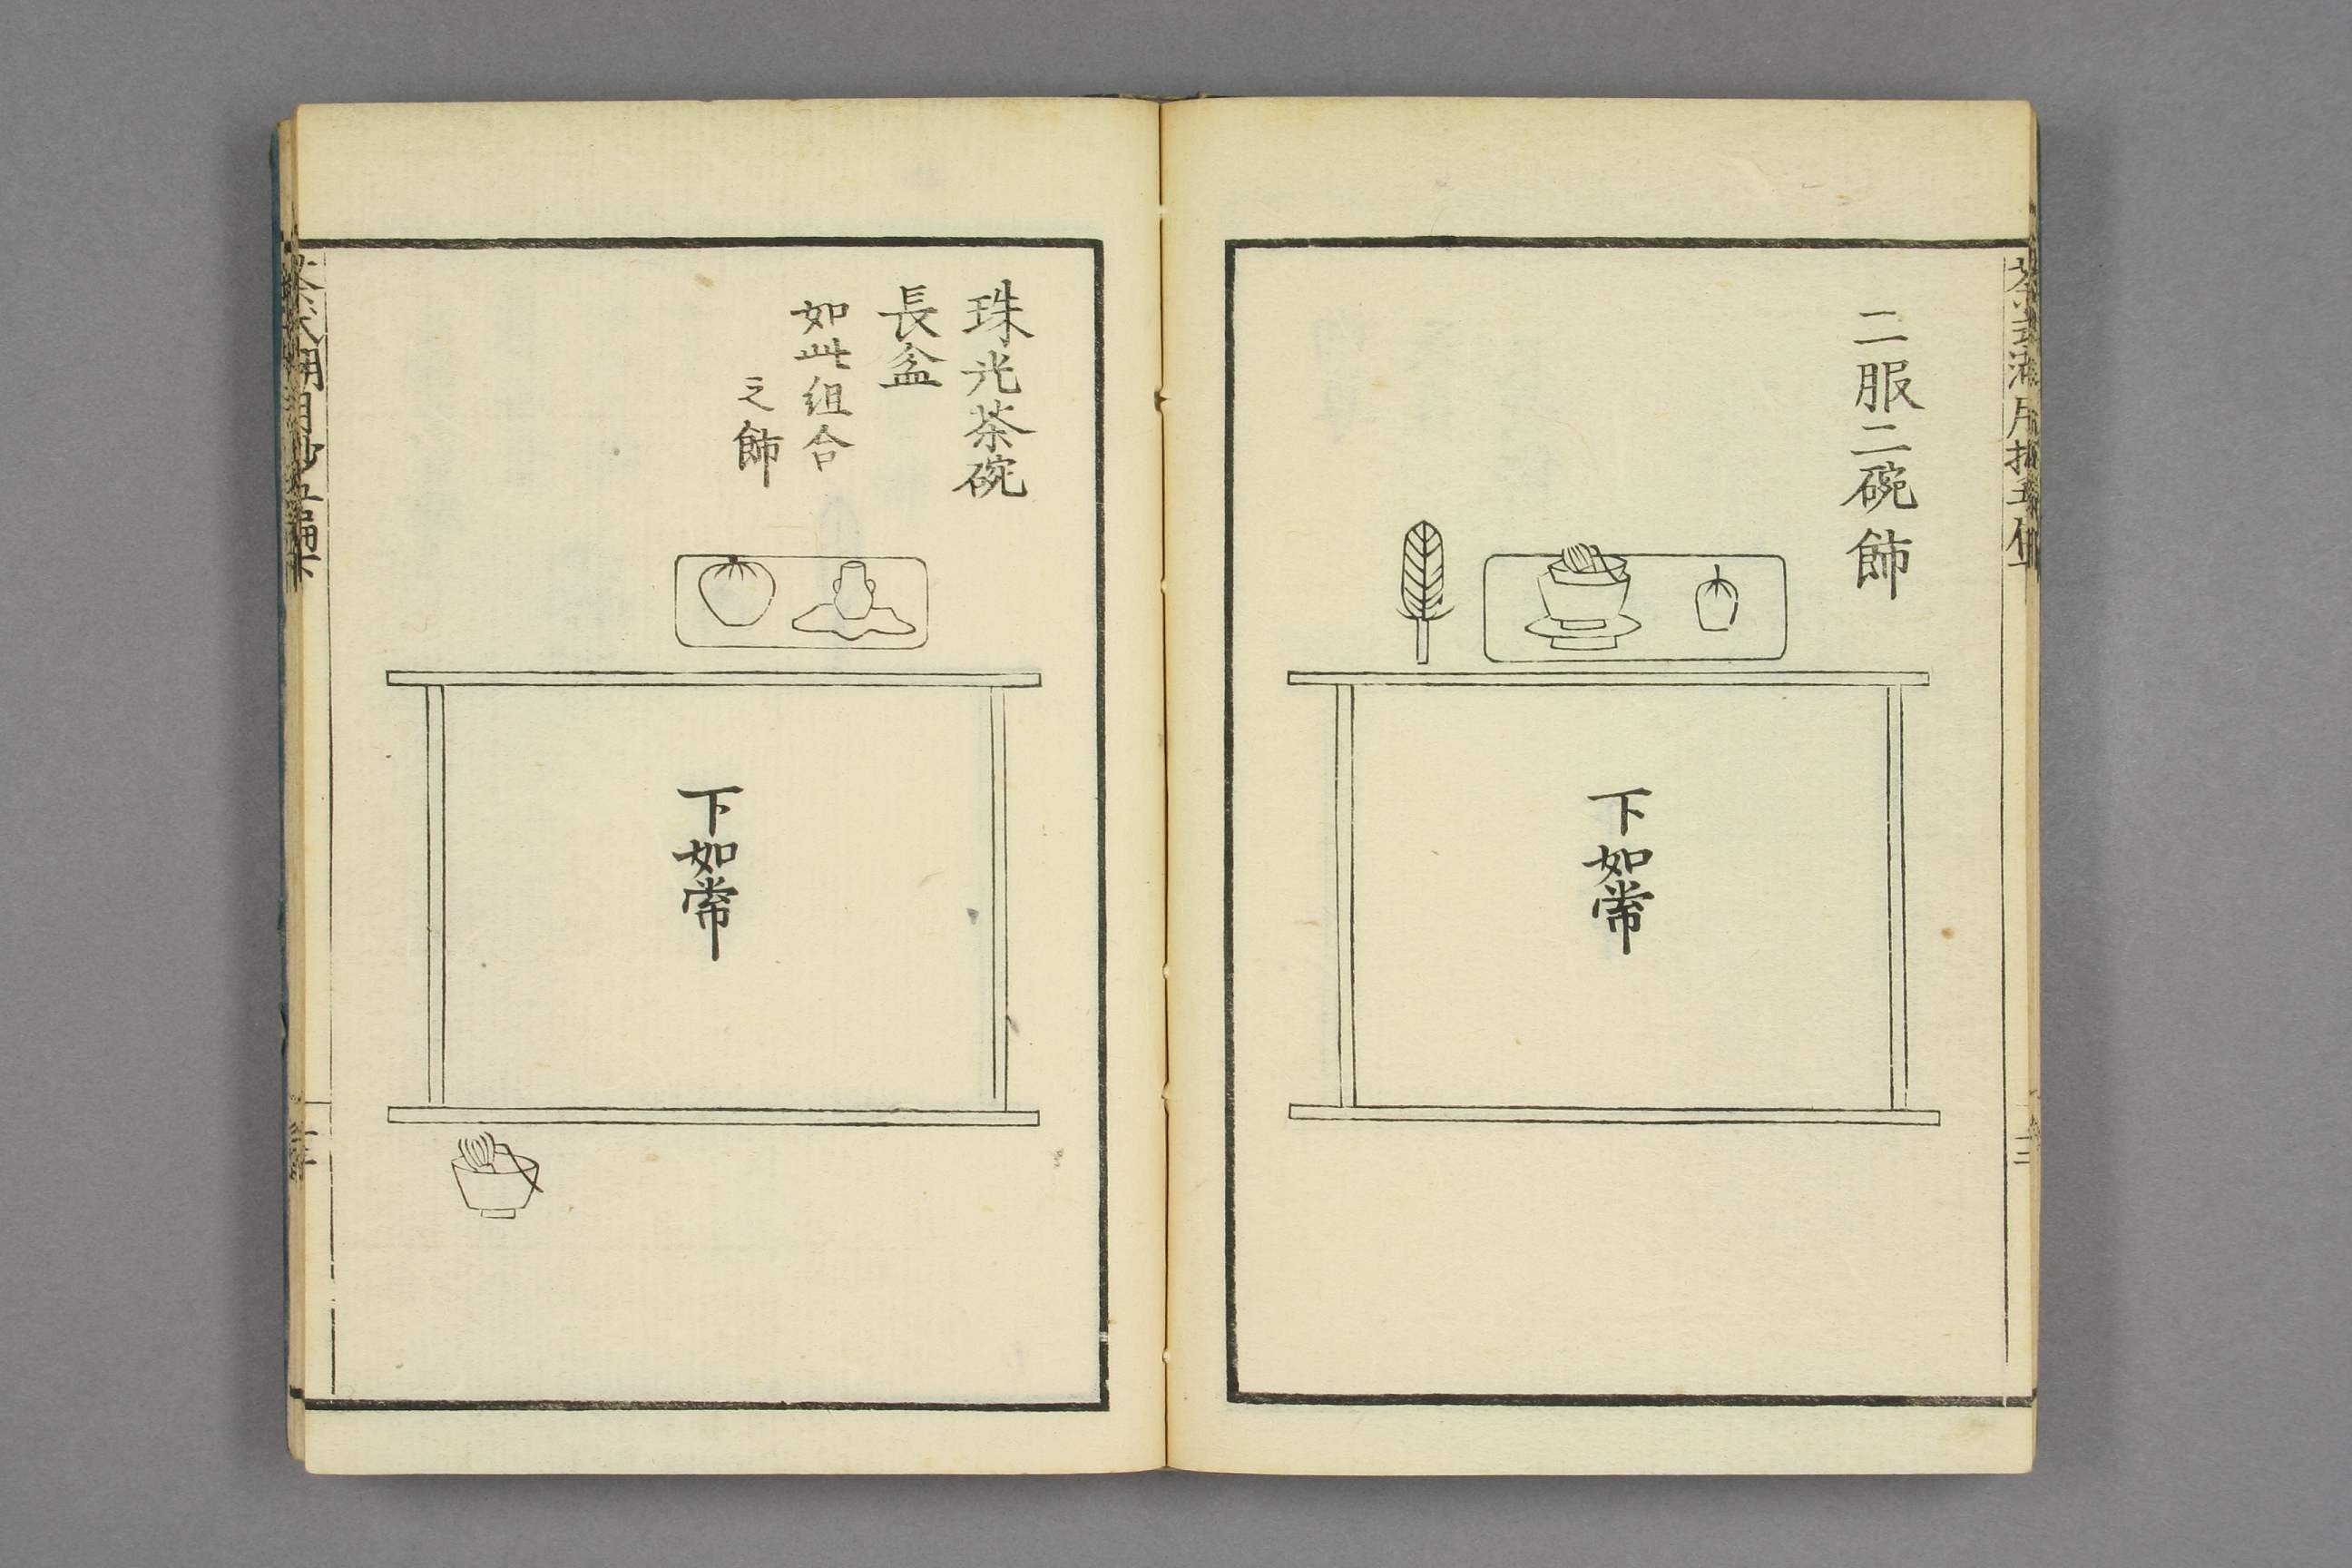 二服二碗飾
下如常
珠光茶碗
長盆
如此組合
之飾
下如常